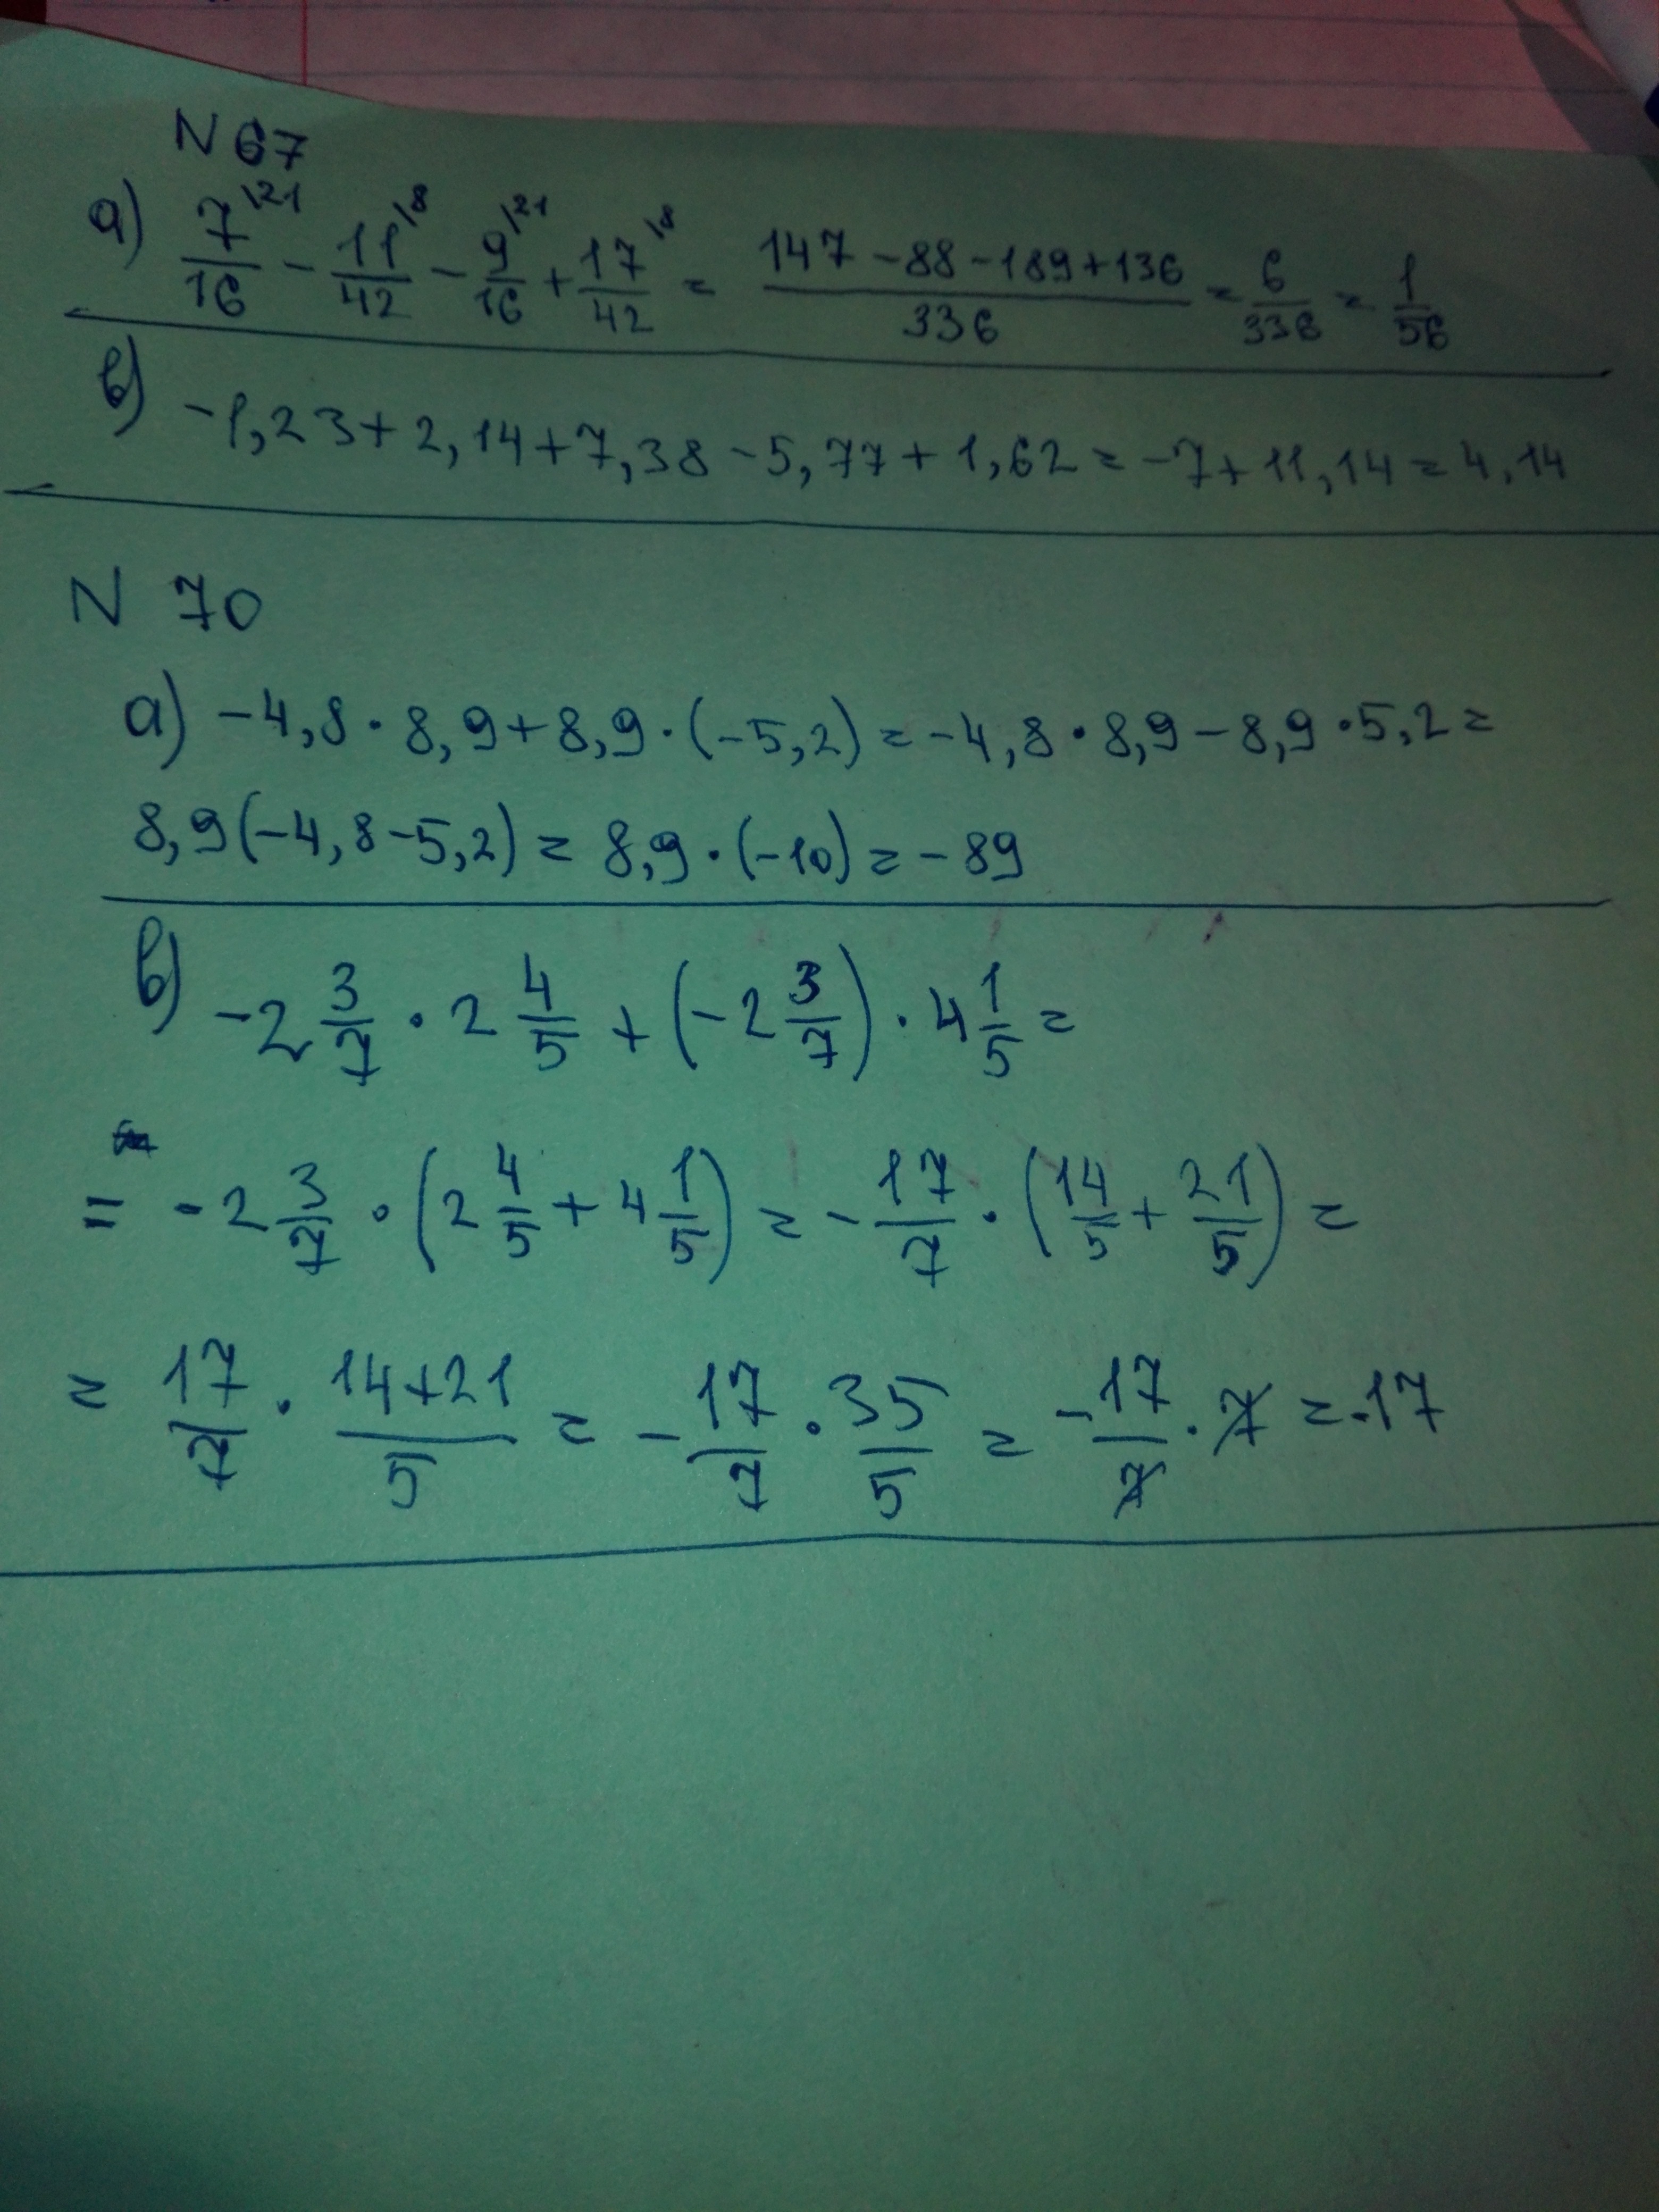 N 67
а) 7\21/16 − 11\8/42 − 9\21/16 + 17\8/42 = 147 − 88 − 189 + 136/336 = 6/336 = 1/56
в) −1,23 + 2,14 + 7,38 − 5,77 + 1,62 = −7 + 11,14 = 4,14
N 70
а) −4,8 · 8,9 + 8,9 · (−5,2) = −4,8 · 8,9 − 8,9 · 5,2 =
8,9(−4,8 − 5,2) = 8,9 · (−10) = −89
в) −2 3/7 · 2 4/5 + (−2 3/7) · 4 1/5 =
= −2 3/7 · (2 4/5 + 4 1/5) = −17/7 · (14/5 + 21/5) =
= 17/7 · 14+21/5 = −17/7 · 35/5 = −17/7 · 7 = −17